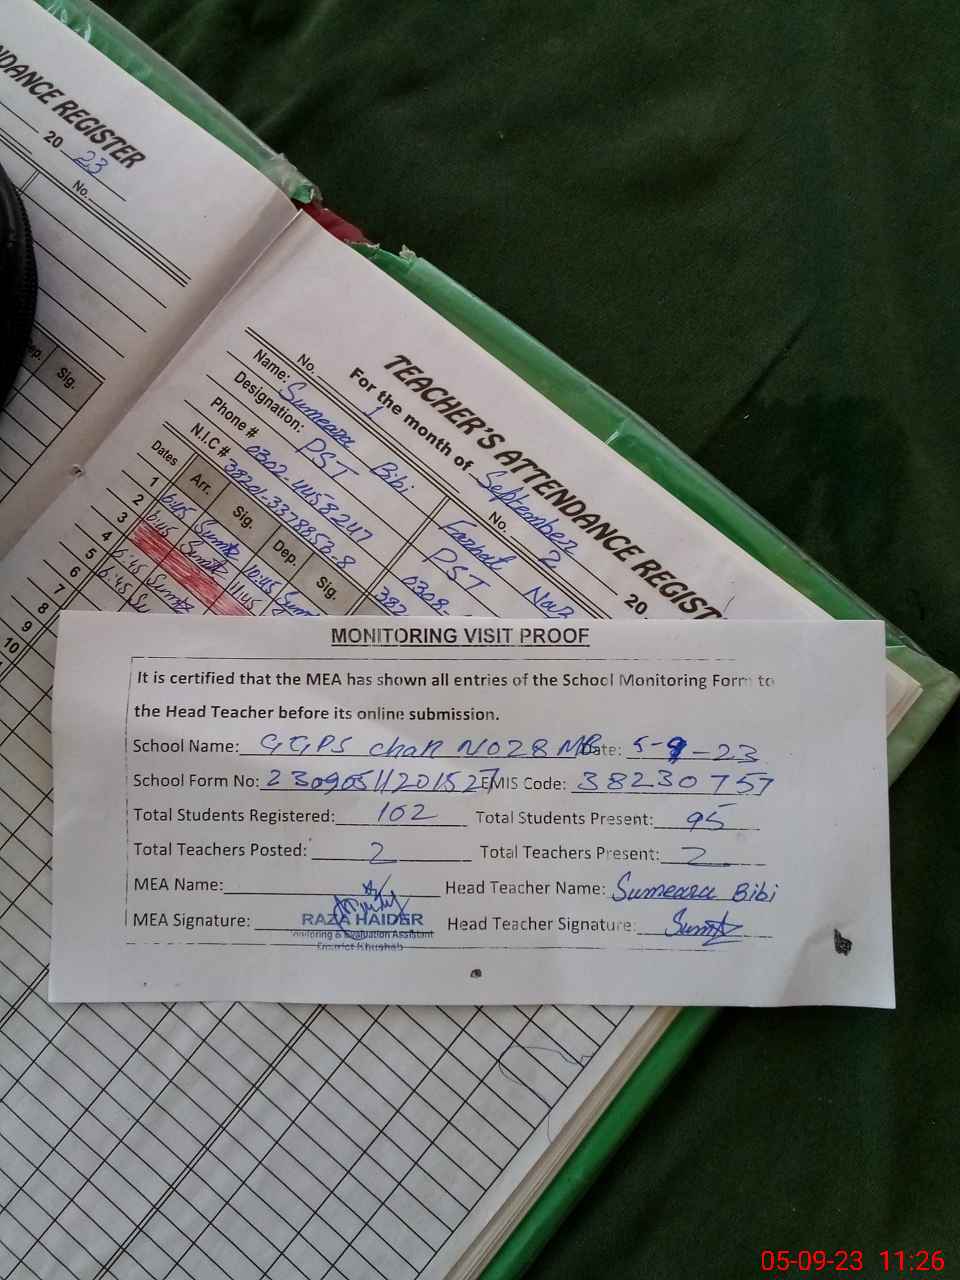 NDANCE REGISTER
20 23
No.
ep. Sig.
TEACHER'S ATTENDANCE REGIST
For the month of September 20
No. 1
No. 2
Name: Sumeara Bibi
Farhat Naz
Designation: PST
PST
Phone # 0302-4458247
0308-
N.I.C # 38201-3378856-8
382
Dates Arr. Sig. Dep. Sig.
1 6:45 10:45
2 6:45 11:45
3
4 6:45
5 6:45
6
7
8
9
10
MONITORING VISIT PROOF
It is certified that the MEA has shown all entries of the School Monitoring Form to
the Head Teacher before its online submission.
School Name: GGPS chak NO28 MB Date: 5-9-23
School Form No: 23090511201527 EMIS Code: 38230757
Total Students Registered: 102 Total Students Present: 95
Total Teachers Posted: 2 Total Teachers Present: 2
MEA Name: Head Teacher Name: Sumeara Bibi
MEA Signature: RAZA HAIDER Head Teacher Signature:
Monitoring & Evaluation Assistant
District Khushab
05-09-23 11:26